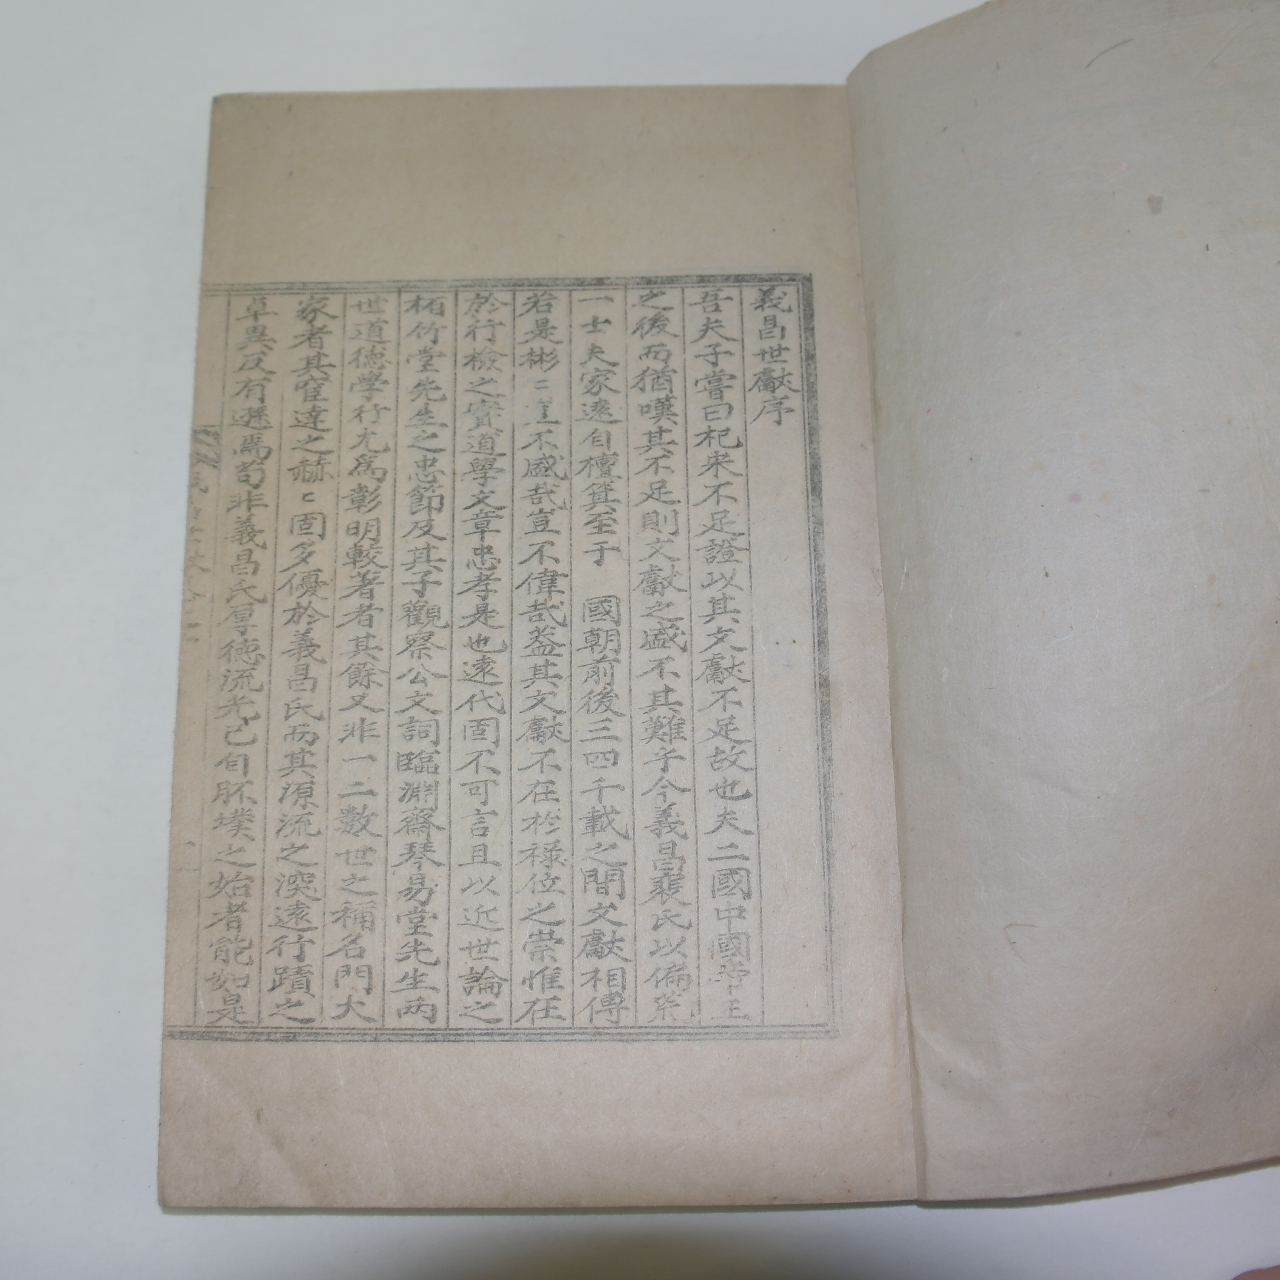 義昌世獻序
吾夫子嘗曰杞宋不足證以其文獻不足故也夫二國中國帝王
之後而猶嘆其不足則文獻之盛不其難乎今義昌裴氏以偏荒
一士夫家遠自檀箕至于 國朝前後三四千載之間文獻相傳
若是彬〻豈不盛哉豈不偉哉盖其文獻不在於祿位之崇惟在
於行檢之實道學文章忠孝是也遠代固不可言且以近世論之
栢竹堂先生之忠節及其子觀察公文詞臨淵齋琴易堂先生兩
世道德学行尤爲彰明較著者其餘又非一二数世之稱名門大
家者其窒達之赫〻固多優於義昌氏而其源流之深遠行蹟之
卓異反有遜焉苟非義昌氏厚德流光己自胚墣之始者能如是